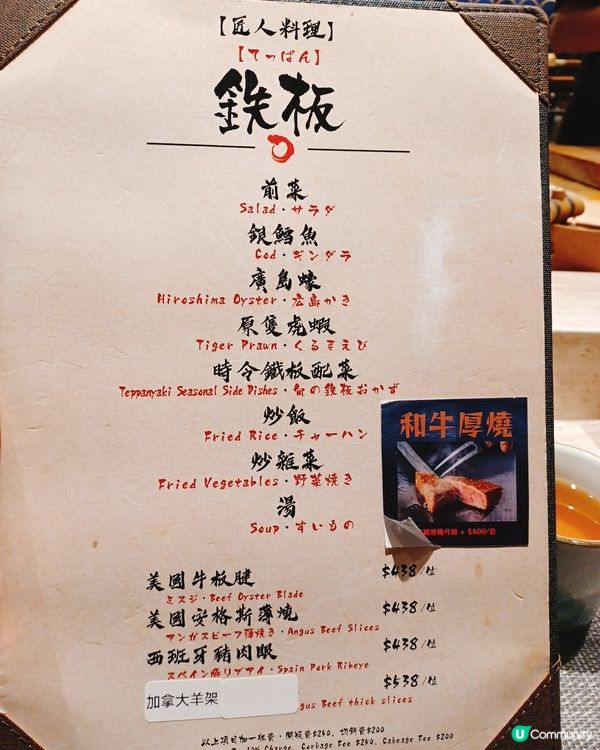 【匠人料理】
【てっぱん】
鉄板
前菜
Salad・サラダ
銀鱈魚
Cod・ギンダラ
廣島蠔
Hiroshima Oyster・広島かき
原隻虎蝦
Tiger Prawn・くるまえび
時令鐵板配菜
Teppanyaki Seasonal Side Dishes・旬の鉄板おかず
炒飯
Fried Rice・チャーハン
炒雜菜
Fried Vegetables・野菜焼き
湯
Soup・すいもの
和牛厚燒
厚燒升級 + $400/位
美國牛板腱 $438/位
ミスジ・Beef Oyster Blade
美國安格斯薄燒 $438/位
アンガスビーフ薄焼き・Angus Beef Slices
西班牙豬肉眼 $438/位
スペイン豚リブアイ・Spain Pork Ribeye
加拿大羊架 $538/位
gus Beef thick slices
以上項目加一收費・開瓶費$240、切餅費$200
10% Charge, Corkage Fee $240, Cakeage Fee $200
U Community